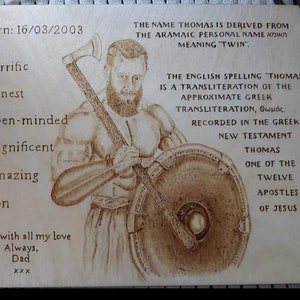 rn: 16/03/2003
rrific
nest
en-minded
gnificent
mazing
on
with all my love
Always,
Dad
xxx
THE NAME THOMAS IS DERIVED FROM
THE ARAMAIC PERSONAL NAME תאומא
MEANING "TWIN".
THE ENGLISH SPELLING "THOMA
IS A TRANSLITERATION OF THE
APPROXIMATE GREEK
TRANSLITERATION, Θωμᾶς,
RECORDED IN THE GREEK
NEW TESTAMENT
THOMAS
ONE OF THE
TWELVE
APOSTLES
OF JESUS